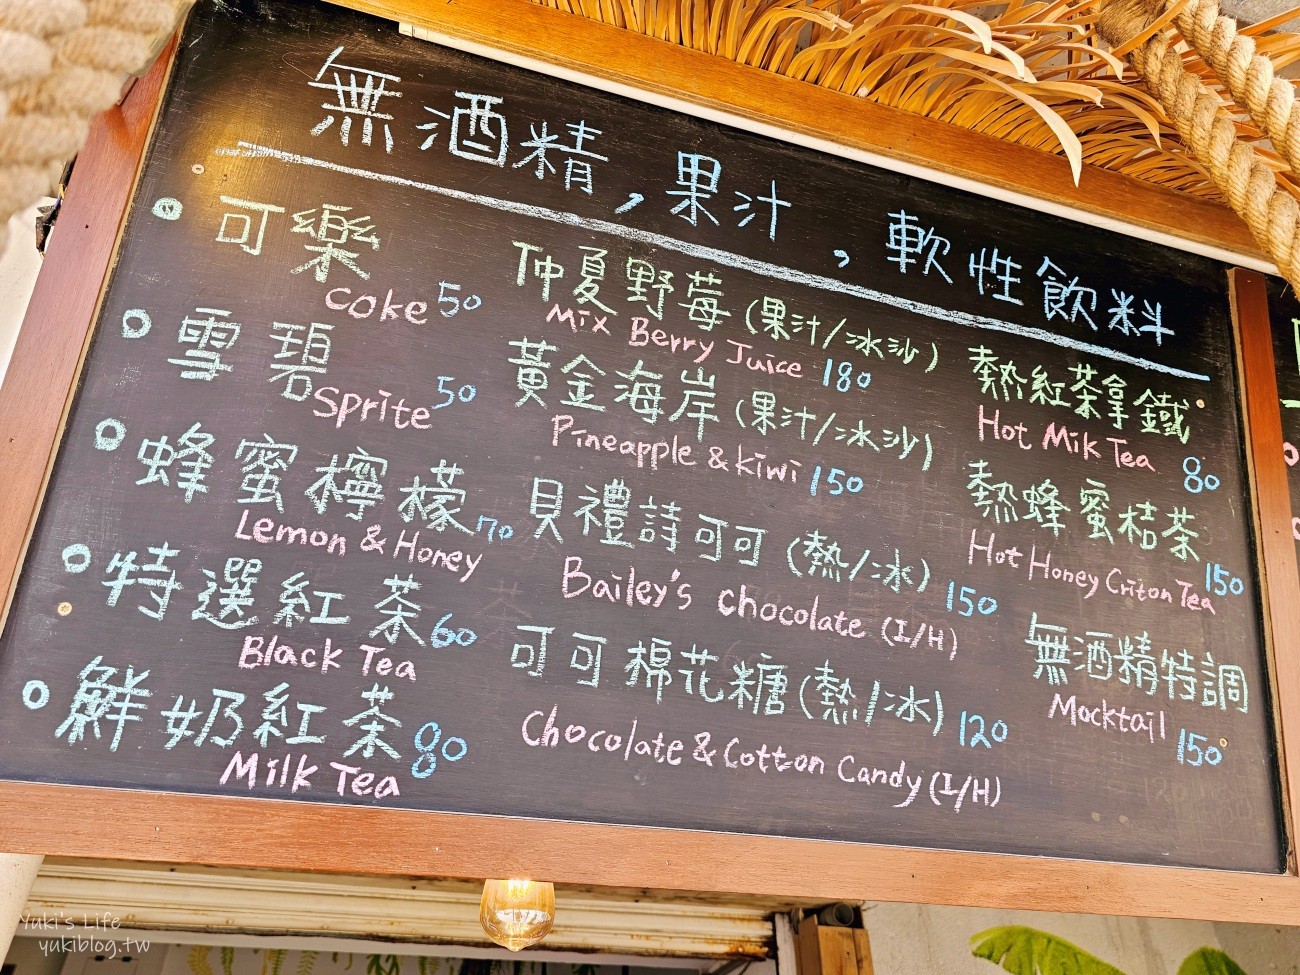 無酒精,果汁,軟性飲料
可樂
coke 50
雪碧
Sprite 50
蜂蜜檸檬 70
Lemon & Honey
特選紅茶 60
Black Tea
鮮奶紅茶 80
Milk Tea
仲夏野莓(果汁/冰沙)
Mix Berry Juice 180
黃金海岸(果汁/冰沙)
Pineapple & kiwi 150
貝禮詩可可(熱/冰) 150
Bailey's chocolate (I/H)
可可棉花糖(熱/冰) 120
Chocolate & Cotton Candy (I/H)
熱紅茶拿鐵
Hot Milk Tea 80
熱蜂蜜桔茶 150
Hot Honey Criton Tea
無酒精特調
Mocktail 150
Yuki's Life
yukiblog.tw